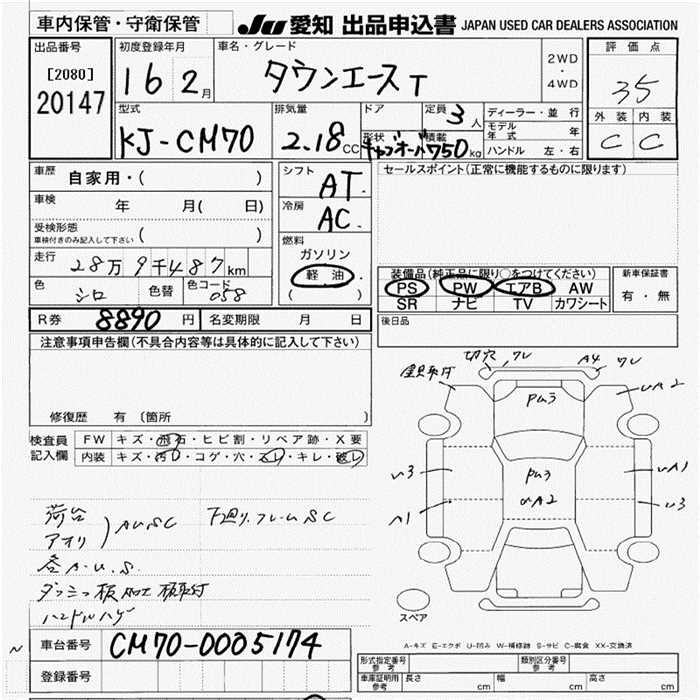 車内保管・守衛保管 JU 愛知 出品申込書 JAPAN USED CAR DEALERS ASSOCIATION
出品番号 初度登録年月 車名・グレード 2WD・4WD 評価点
[2080] 20147 16 2月 タウンエース T 35
型式 排気量 ドア 定員 3人 ディーラー・並行 外装 内装
KJ-CM70 2.18CC 形状 キャブオーバ 積載 750kg モデル年式 年 C C
ハンドル 左・右
車歴 自家用・( ) シフト AT. セールスポイント(正常に機能するものに限ります)
車検 年 月( 日) 冷房 AC.
受検形態 ( )
車検付きのみ記入して下さい
燃料
走行 28万9千487km ガソリン
軽油
( )
装備品(純正品に限り○をつけてください) 新車保証書
色 シロ 色替 色コード 058 PS PW エアB AW 有・無
SR ナビ TV カワシート
R券 8890円 名変期限 月 日 後日品
注意事項申告欄(不具合内容等は具体的に記入して下さい)
修復歴 有 〔箇所 〕
検査員 FW キズ・飛石・ヒビ割・リペア跡・X要
記入欄 内装 キズ・汚レ・コゲ・穴・スレ・キレ・破レ
切穴, ワレ A4 ワレ
UA2
Pu3
い3 Pu3 UA1
A1 αA2 い3
荷台
アオリ ) AUSC 下廻り.フレームSC
各A.U.S.
ダッシュ板加工
ハンドルハゲ
スペア
A-キズ E-エクボ U-凹み W-補修跡 S-サビ C-腐食 XX-交換済
車台番号 CM70-0005174
登録番号
形式指定番号 参考 類別区分番号 参考
車庫証明用 参考 長さ cm 幅 cm 高さ cm